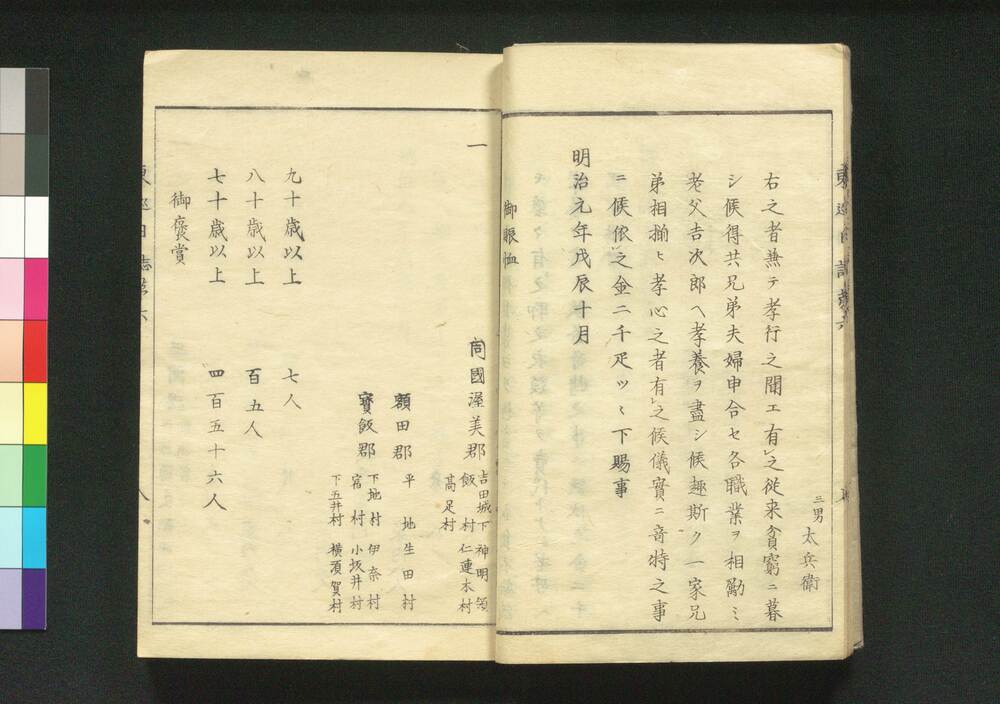 三男 太兵衛
右之者兼テ孝行之聞エ有之従来貧窮ニ暮
シ候得共兄弟夫婦申合セ各職業ヲ相勵ミ
老父吉次郎ヘ孝養ヲ盡シ候趣斯ク一家兄
弟相揃ヒ孝心之者有之候儀實ニ奇特之事
ニ候依之金二千疋ツヽ下賜事
明治元年戊辰十月
御賑恤
一
同國渥美郡 吉田城下 神明領
飯村 仁連木村
高足村
額田郡 平地 生田村
寳飯郡 下地村 伊奈村
宿村 小坂井村
下五井村 横須賀村
九十歳以上 七人
八十歳以上 百五人
七十歳以上 四百五十六人
御褒賞